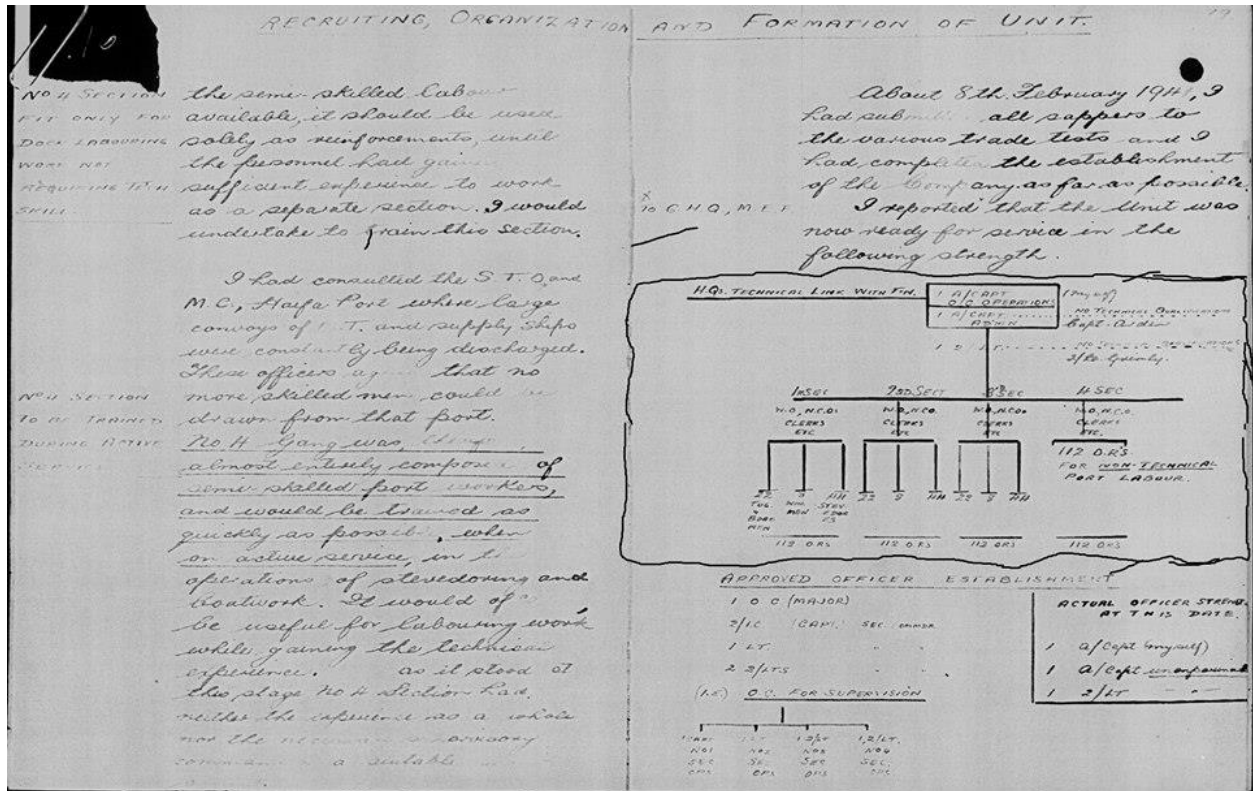 1.10
RECRUITING, ORGANIZATION AND FORMATION OF UNIT.
19
No 4 SECTION
FIT ONLY FOR
DOCK LABOURING
WORK NOT
REQUIRING TECH
SKILL.
the semi-skilled labour
available, it should be used
solely as reinforcements, until
the personnel had gained
sufficient experience to work
as a separate section. I would
undertake to train this section.
I had consulted the S.T.O. and
M.C., Haifa Port where large
convoys of M.T. and supply ships
were constantly being discharged.
These officers agreed that no
more skilled men could be
drawn from that port.
No 4 SECTION
TO BE TRAINED
DURING ACTIVE
SERVICE
No 4 Gang was,
almost entirely composed of
semi-skilled port workers,
and would be trained as
quickly as possible, when
on active service, in
operations of stevedoring and
boatwork. It would of
be useful for labouring work
while gaining the technical
experience. as it stood at
this stage No 4 Section had
neither the experience as a whole
nor the
a suitable
About 8th February 1941, I
had submitted all sappers to
the various trade tests and I
had completed the establishment
of the Company as far as possible.
x
TO G.H.Q, M.E.F.
I reported that the Unit was
now ready for service in the
following strength.
H.Qs. TECHNICAL LINK WITH FIN.
1 A/CAPT
O/C OPERATIONS
(myself)
1 A/CAPT
ADMIN
NO TECHNICAL QUALIFICATION
Capt. Arden
1 2/LT
NO TECHNICAL QUALIFICATIONS
1st SEC 2ND SECT 3RD SEC 4 SEC
W.O, N.C.Os W.O, N.C.O. W.O, N.C.Os W.O, N.C.O.
CLERKS CLERKS CLERKS CLERKS
ETC ETC ETC ETC.
112 O.R'S
FOR NON-TECHNICAL
PORT LABOUR.
22 8 44 22 8 44 22 8 44
TUG WIN. STEV-
& MEN EDOR
BOAT ES
MEN
112 O.R.S 112 O.R'S 112 O.R'S 112 O.R'S
APPROVED OFFICER ESTABLISHMENT
1 O C (MAJOR)
2/I.C (CAPT.) SEC. COMMDR
1 LT. " "
2 2/LTS " "
(I.E.) O.C. FOR SUPERVISION
1 CAPT 1 LT 1 2/LT 1, 2/LT.
NO1 NO2 NO3 NO4
SEC SEC SEC SEC.
OPS OPS OPS OPS
ACTUAL OFFICER STRENGTH
AT THIS DATE.
1 A/Capt (myself)
1 A/Capt unexperienced
1 2/LT " "